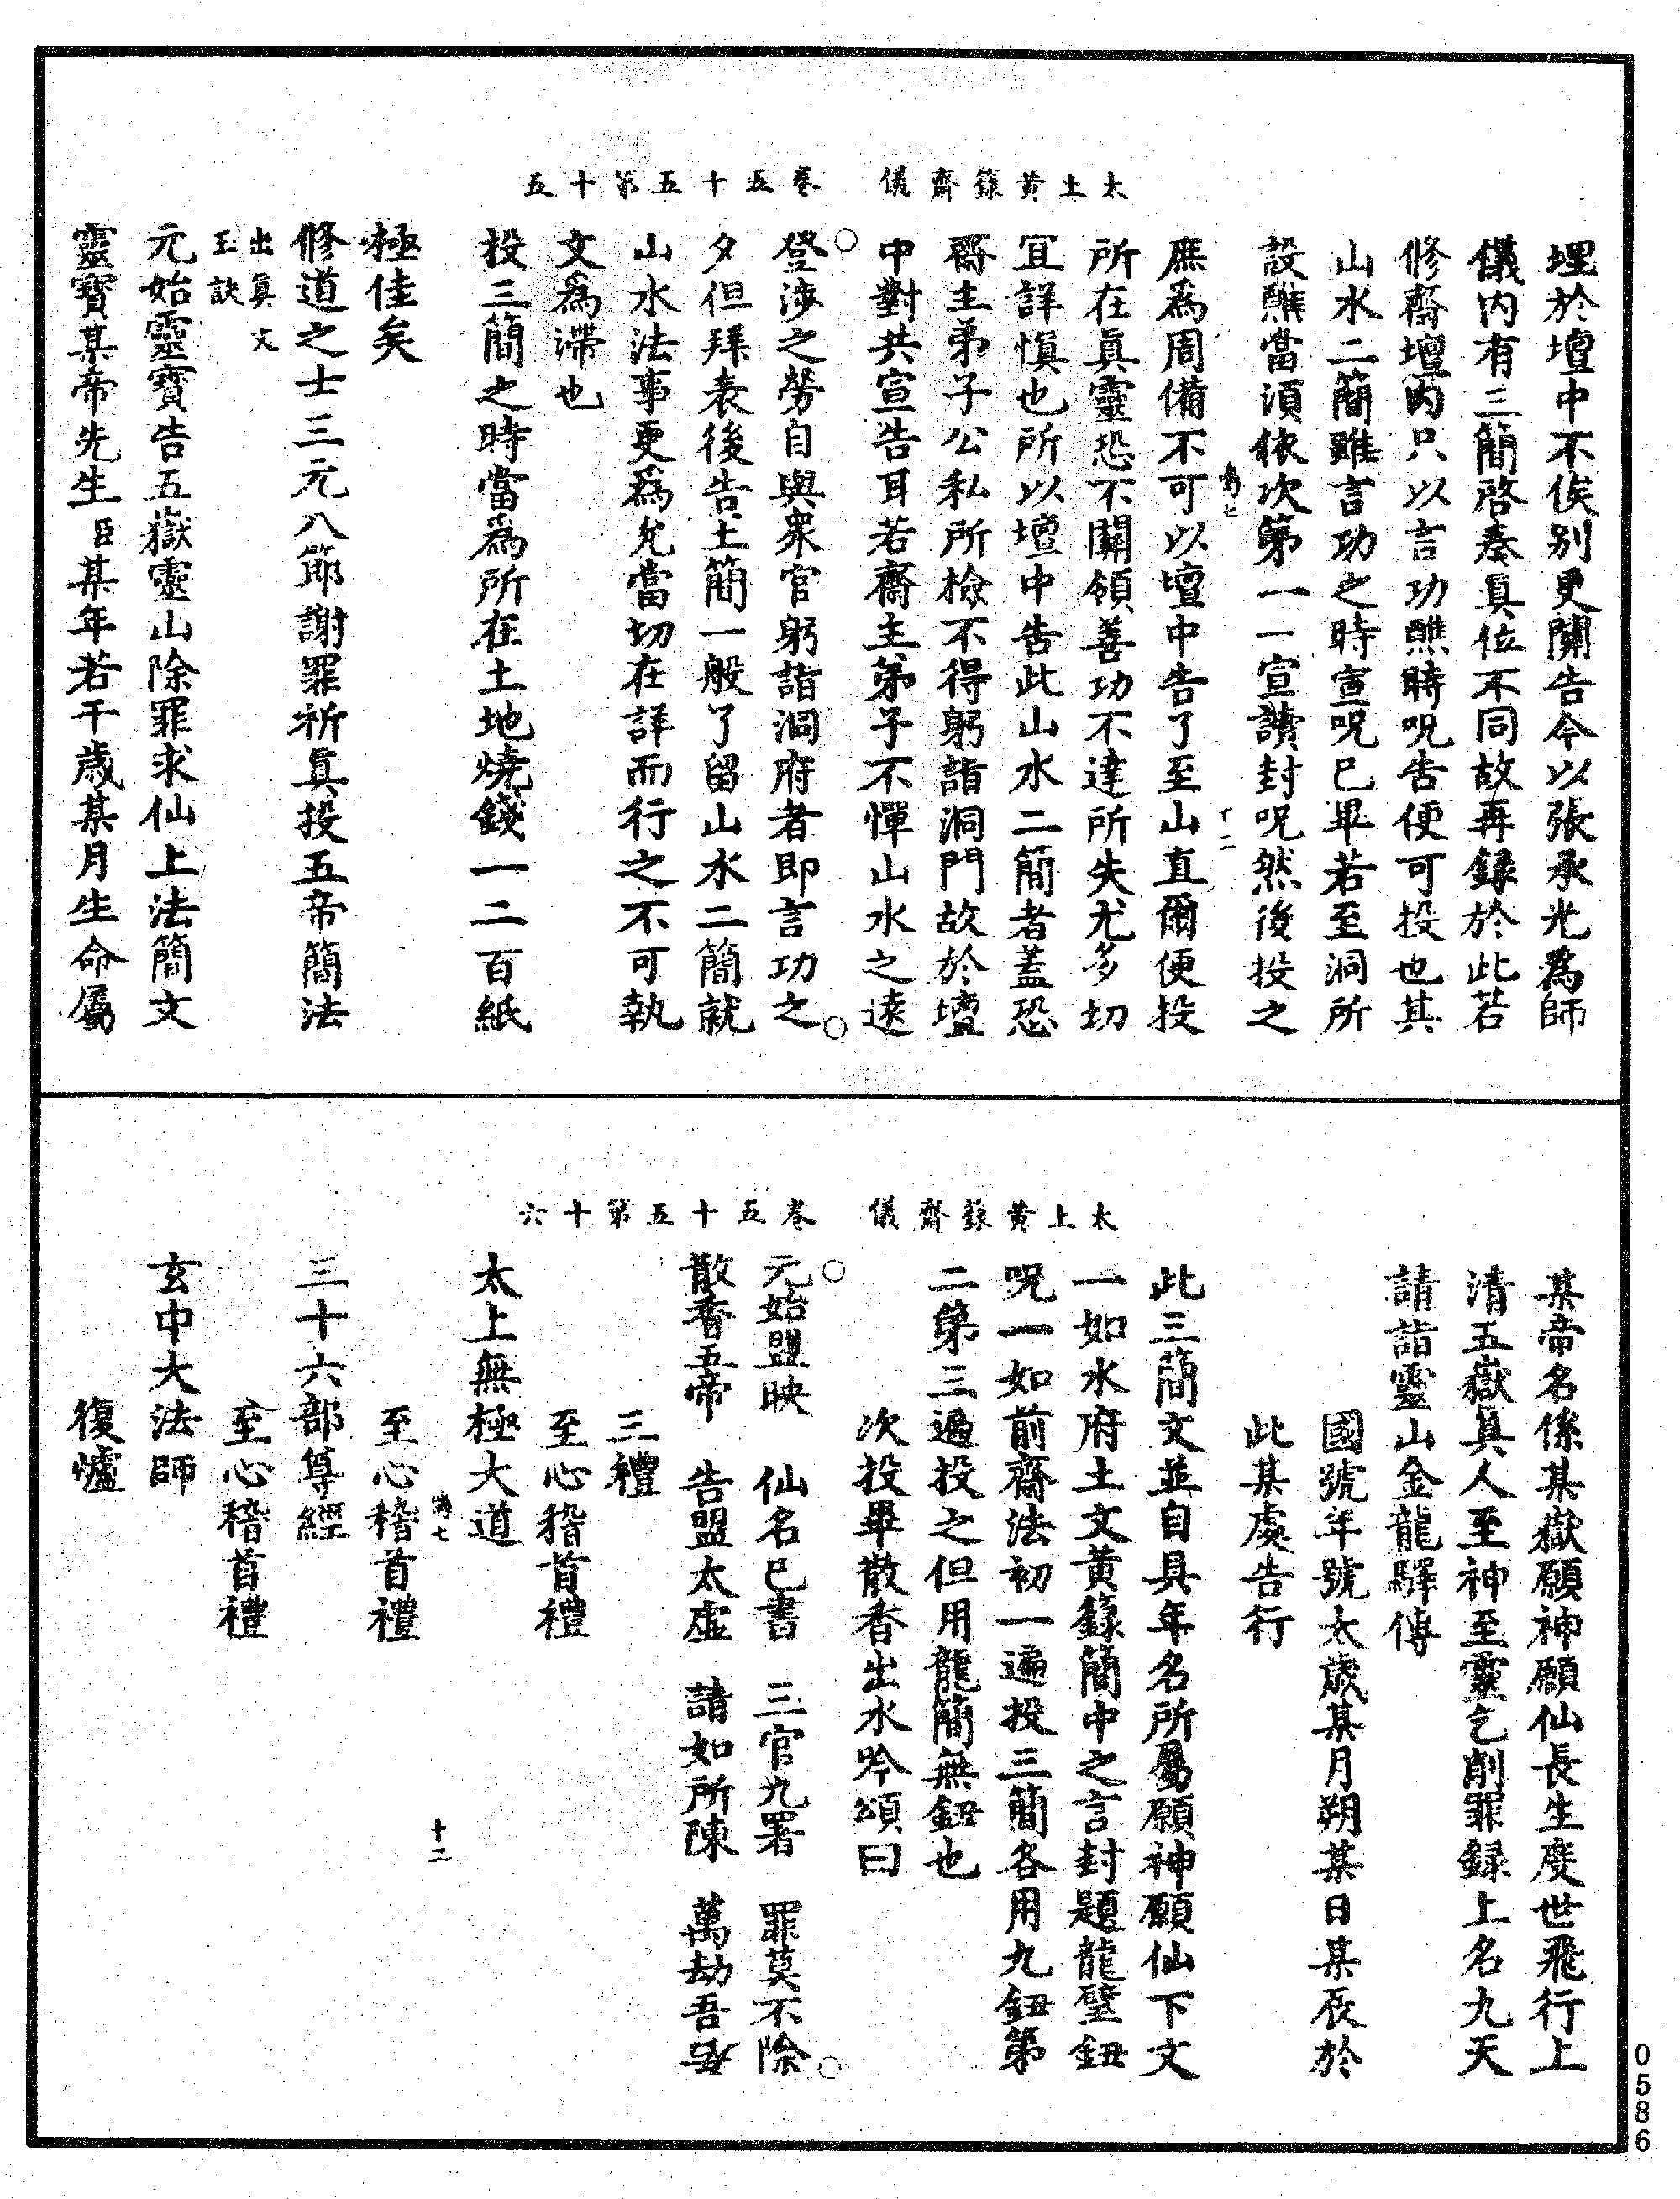 太上黃籙齋儀　卷五十五第十五
埋於壇中不俟別更關告今以張承光為師
儀內有三簡啓奏真位不同故再録於此若
修齋壇內只以言功醮時呪告便可投也其
山水二簡雖言功之時宣呪已畢若至洞所
設醮當須依次第一一宣讀封呪然後投之
十二
庶為周備不可以壇中告了至山直爾便投
所在真靈恐不關領善功不達所失尤多切
宜詳慎也所以壇中告此山水二簡者蓋恐
齋主弟子公私所檢不得躬詣洞門故於壇
中對共宣告耳若齋主弟子不憚山水之遠
登涉之勞自與衆官躬詣洞府者即言功之
夕但拜表後告土簡一般了留山水二簡就
山水法事更為允當切在詳而行之不可執
文為滯也
投三簡之時當為所在土地燒錢一二百紙
極佳矣
修道之士三元八節謝罪祈真投五帝簡法
出真文
玉訣
元始靈寶告五嶽靈山除罪求仙上法簡文
靈寶某帝先生臣某年若干歲某月生命屬
太上黃籙齋儀　卷五十五第十六
某帝名係某嶽願神願仙長生度世飛行上
清五嶽真人至神至靈乞削罪録上名九天
請詣靈山金龍驛傳
國號年號太歲某月朔某日某辰於
此某處告行
此三簡文並自具年名所屬願神願仙下文
一如水府土文黃籙簡中之言封題龍璧鈕
呪一如前齋法初一遍投三簡各用九鈕第
二第三遍投之但用龍簡無鈕也
次投畢散香出水吟頌曰
元始盟映　仙名已書　三官九署　罪莫不除
散香五帝　告盟太虛　請如所陳　萬劫吾居
三禮
至心稽首禮
太上無極大道
七
十二
至心稽首禮
三十六部尊經
至心稽首禮
玄中大法師
復爐
0586